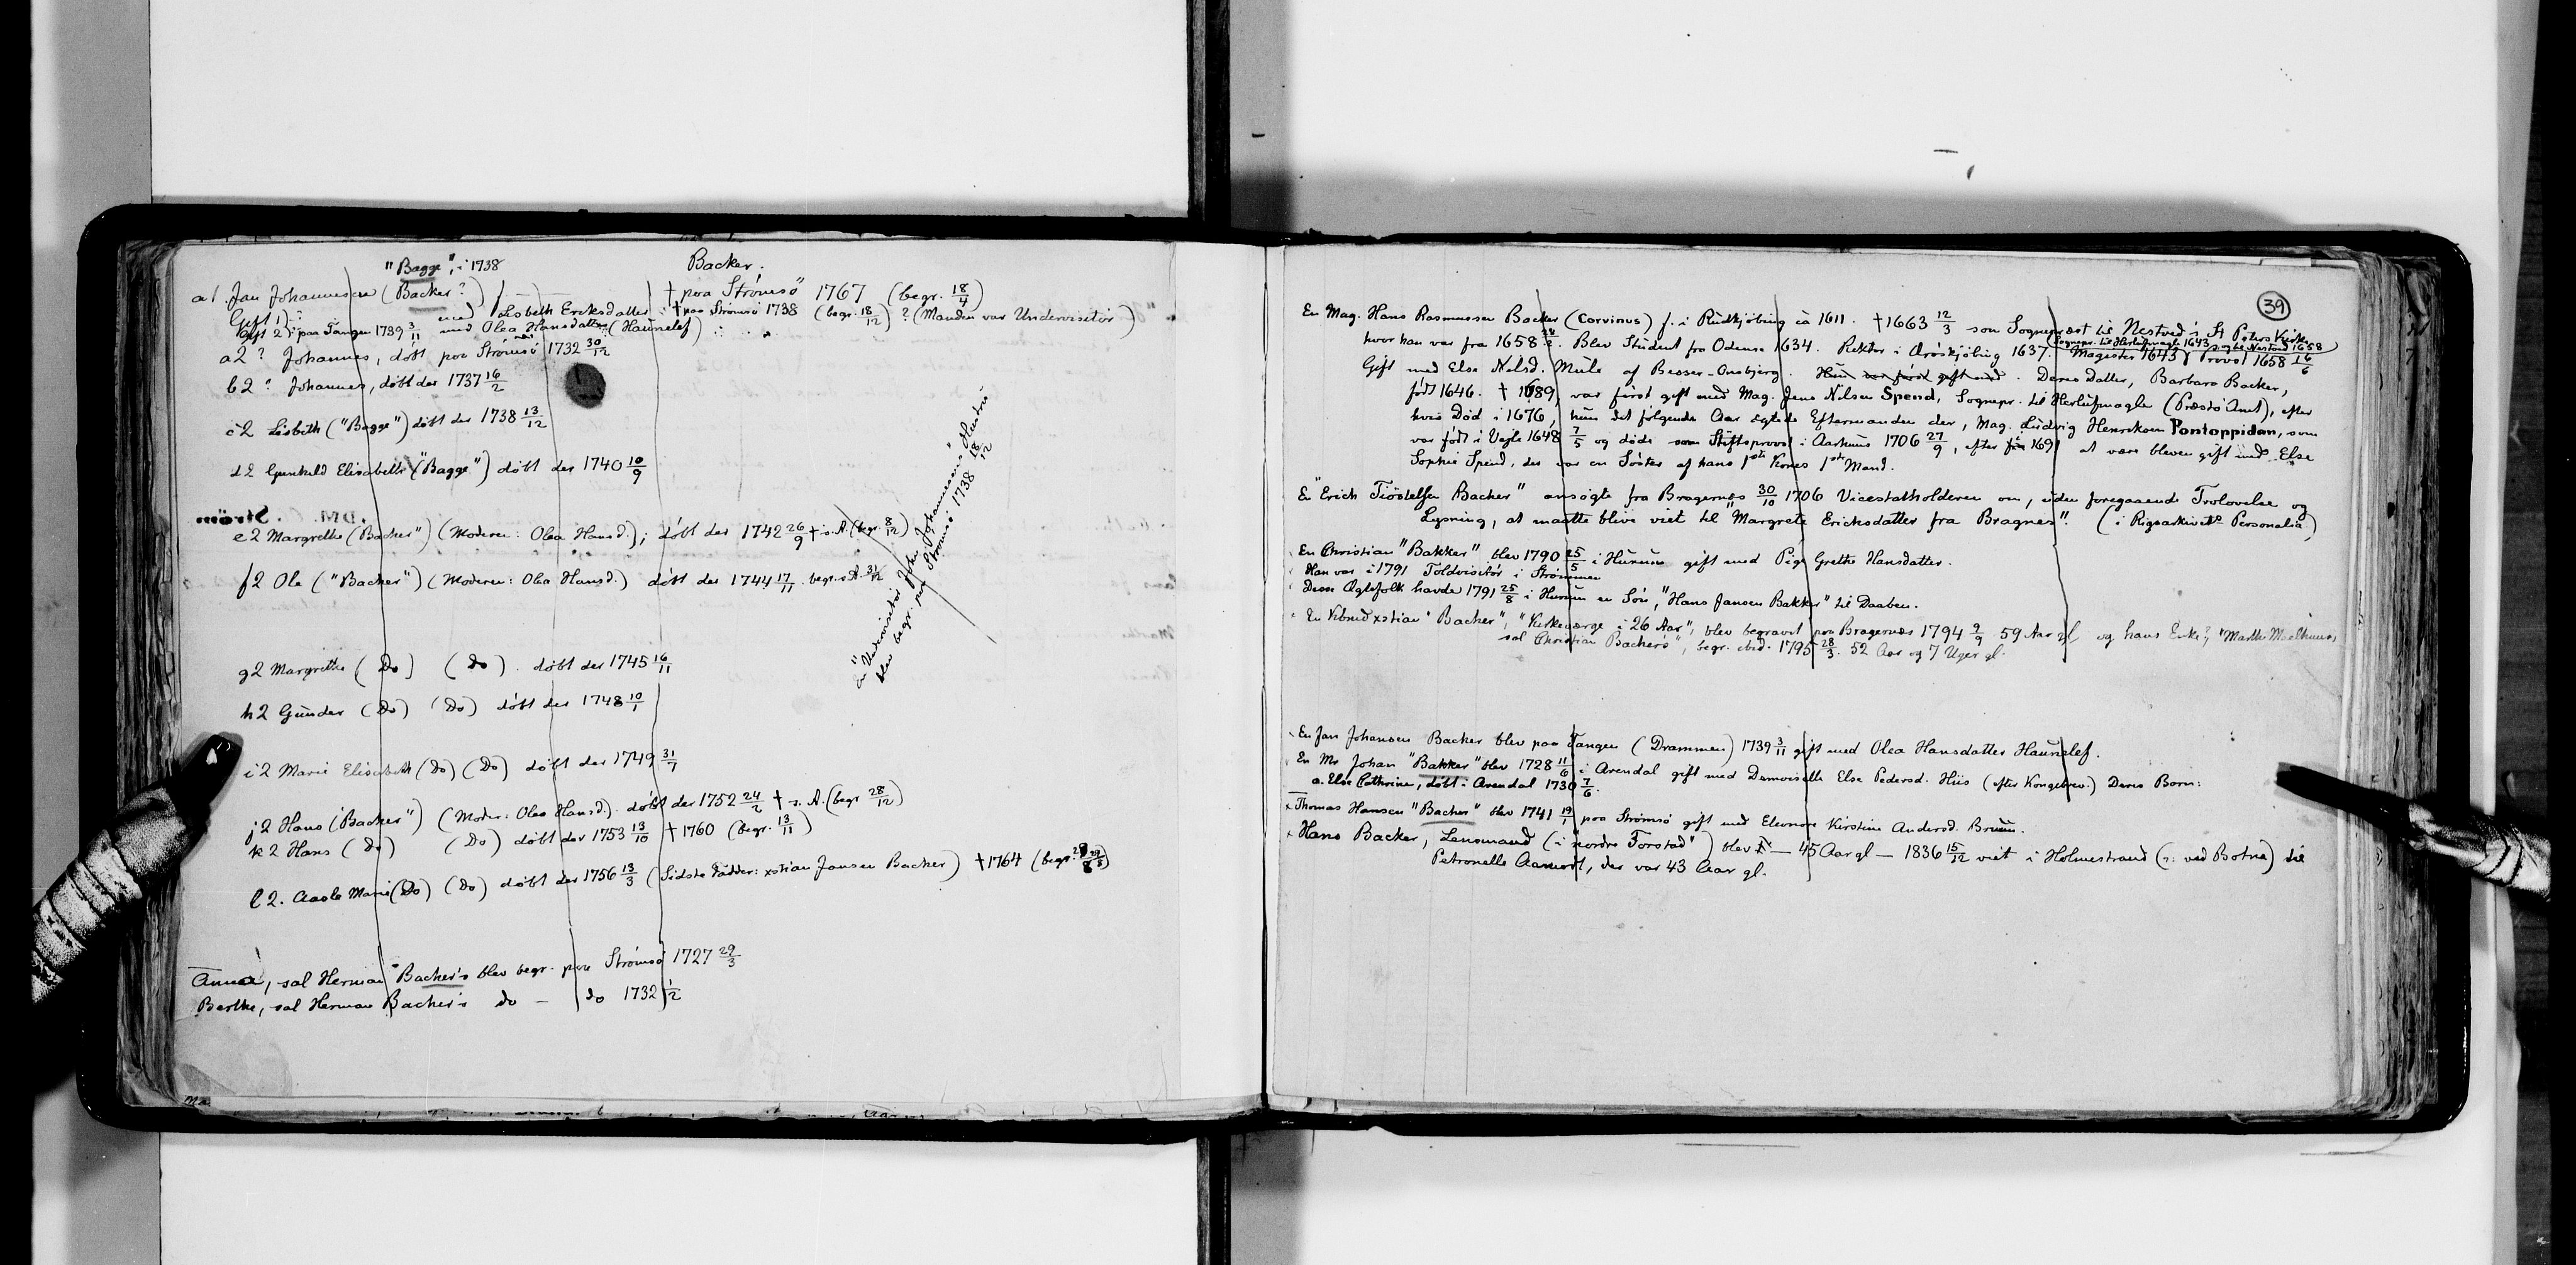 "Bagge", i 1738
Backer.
a1. Jan Johannesen (Backer?) † paa Strömsö 1767 (begr. 18/4)
Gift 1): ? med Lisbeth Ericksdatter † paa Strömsö 1738 (begr. 18/12) ? (Manden var Undervisitör)
Gift 2): paa Tangen 1739 3/11 med Olea Hansdatter (Haunelef)
a2 ? Johannes, döbt paa Strömsö 1732 30/12
b2 ? Johannes, döbt der 1737 16/2
c2 Lisbeth ("Bagge") döbt der 1738 13/12
d2 Gunhild Elisabeth ("Bagge") döbt der 1740 10/9
e2 Margrethe (Backer") (Moderen: Olea Hansd.); döbt der 1742 26/9 † s. A. (begr. 8/12)
f2 Ole ("Backer") (Moderen: Olea Hansd.) döbt der 1744 17/11 begr. s. A. 31/12
g2 Margrethe (Do) (do). döbt der 1745 16/11
h2 Gunder (Do) (Do) döbt der 1748 10/1
i2 Marie Elisabeth (Do) (Do) döbt der 1749 31/7
j2 Hans (Backer") (Moder: Olea Hansd.) döbt der 1752 24/2 † s. A. (begr 28/12)
k2 Hans (Do) (Do) döbt der 1753 13/10 † 1760 (begr. 13/11)
l2. Aasle Marie (Do) (Do) döbt der 1756 13/3 (Sidste Fadder: xstian Jansen Backer) † 1764 (begr.
En "Undervisitör John Johannesens" Hustru
blev begr. paa Strömsö 1738 18/12
Anna, sal Herman Backer's blev begr. paa Strömsö 1727 29/3
Berthe, sal Herman Backer's do - do 1732 1/2
39
En Mag. Hans Rasmussen Backer (Corvinus) f. i Rudkjöbing ca 1611. † 1663 12/3 som Sognepræst til Nestved's St Peters Kirke
hvor han var fra 1658. Blev Student fra Odense 1634. Rektor i Æröskjöbing 1637. Sognepr. til Herlufmagle 1643 Magister 1643 Provst 1658 16/6
Gift med Else Nilsd. Mule af Besser-Onsbjerg. Hun var först gift med. Deres Datter, Barbara Backer,
född 1646. † 1689, var först gift med Mag. Jens Nilsen Spend, Sognepr. til Herlufmagle (Præstö Amt), efter
hvis Död i 1676, hun det fölgende Aar ægtede Eftermanden der, Mag. Ludvig Henriksen Pontoppidan, som
var född i Vejle 1648 7/5 og döde som Stiftsprovst i Aarhuus 1706 27/9, efter i 1691 at være bleven gift med Else
Sophie Spend, der var en Söster af hans 1ste Kones 1ste Mand.
En "Erich Tiöstelsen Backer" ansögte fra Bragernæs 30/10 1706 Vicestatholderen om, uden foregaaende Trolovelse og
Lysning, at maatte blive viet til "Margrete Ericksdatter fra Bragnes". (i Rigsarkivets Personalia)
En Christian "Bakker" blev 1790 25/5 i Hurum gift med Pige Grethe Hansdatter.
Han var i 1791 Toldvisitör i Strömmen
Disse Ægtefolk havde 1791 25/8 i Hurum en Sön, "Hans Jansen Bakker" til Daaben.
En Kbmd xstian "Backer", "Kirkeværge i 26 Aar", blev begravet paa Bragernæs 1794 9/9 59 Aar gl og hans Enke?, "Marthe
sal Christian Backer's", begr. ibid. 1795 28/3. 52 Aar og 7 Uger gl.
En Jan Johansen Backer blev paa Tangen (Drammen) 1739 3/11 gift med Olea Hansdatter Haunelef.
En Mr Johan "Bakker" blev 1728 11/6 i Arendal gift med Demoiselle Else Pedersd. Hiis (efter Kongebrev.) Deres Born:
a. Else Cathrine, döbt i Arendal 1730 7/6.
Thomas Hansen "Backer" blev 1741 19/1 paa Strömsö gift med Eleonore Kirstine Andersd. Bruun.
Hans Backer, Lensmand (i "nordre Forstad") blev — 45 Aar gl — 1836 15/12 viet i Holmestrand (ɔ: ved Botne) til
Petronelle Aamodt, der var 43 Aar gl.